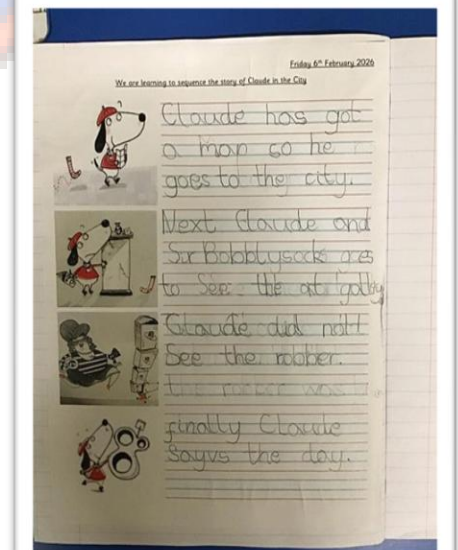 Friday 6th February 2026
We are learning to sequence the story of Claude in the City
Claude has got
a map so he
goes to the city.
Next Claude and
Sir Bobblysocks goes
to See the art gallay
Claude did nott
See the robber.
the robber was
finally Claude
sayvs the day.